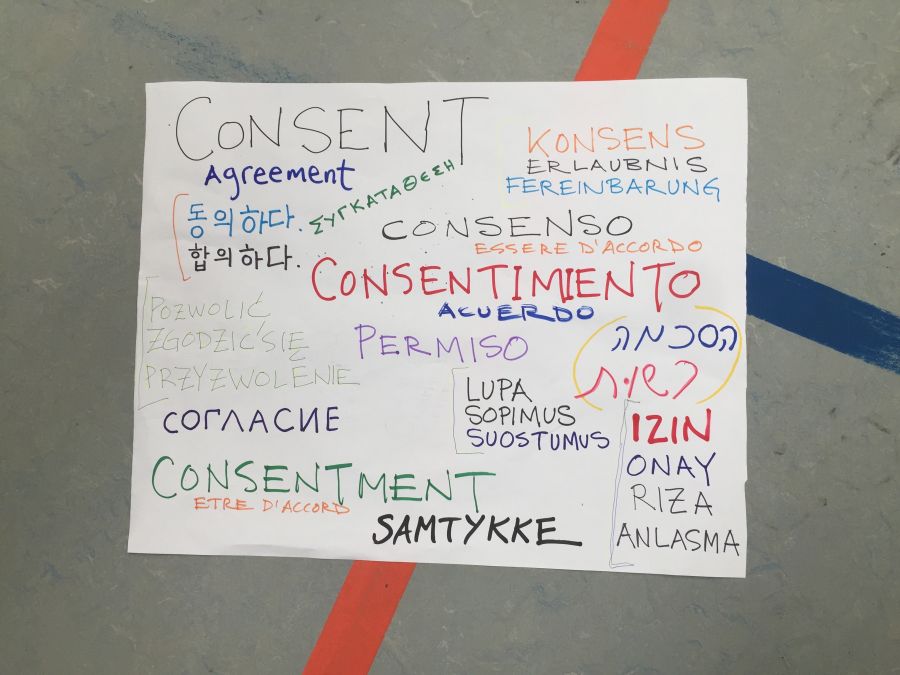 CONSENT
Agreement
동의하다.
합의하다.
ΣΥΓΚΑΤΑΘΕΣΗ
KONSENS
ERLAUBNIS
FEREINBARUNG
CONSENSO
ESSERE D'ACCORDO
CONSENTIMIENTO
ACUERDO
PERMISO
הסכמה
רשות
POZWOLIĆ
ZGODZIĆ SIĘ
PRZYZWOLENIE
СОГЛАСИЕ
LUPA
SOPIMUS
SUOSTUMUS
IZIN
ONAY
RIZA
ANLASMA
CONSENTMENT
ETRE D'ACCORD
SAMTYKKE